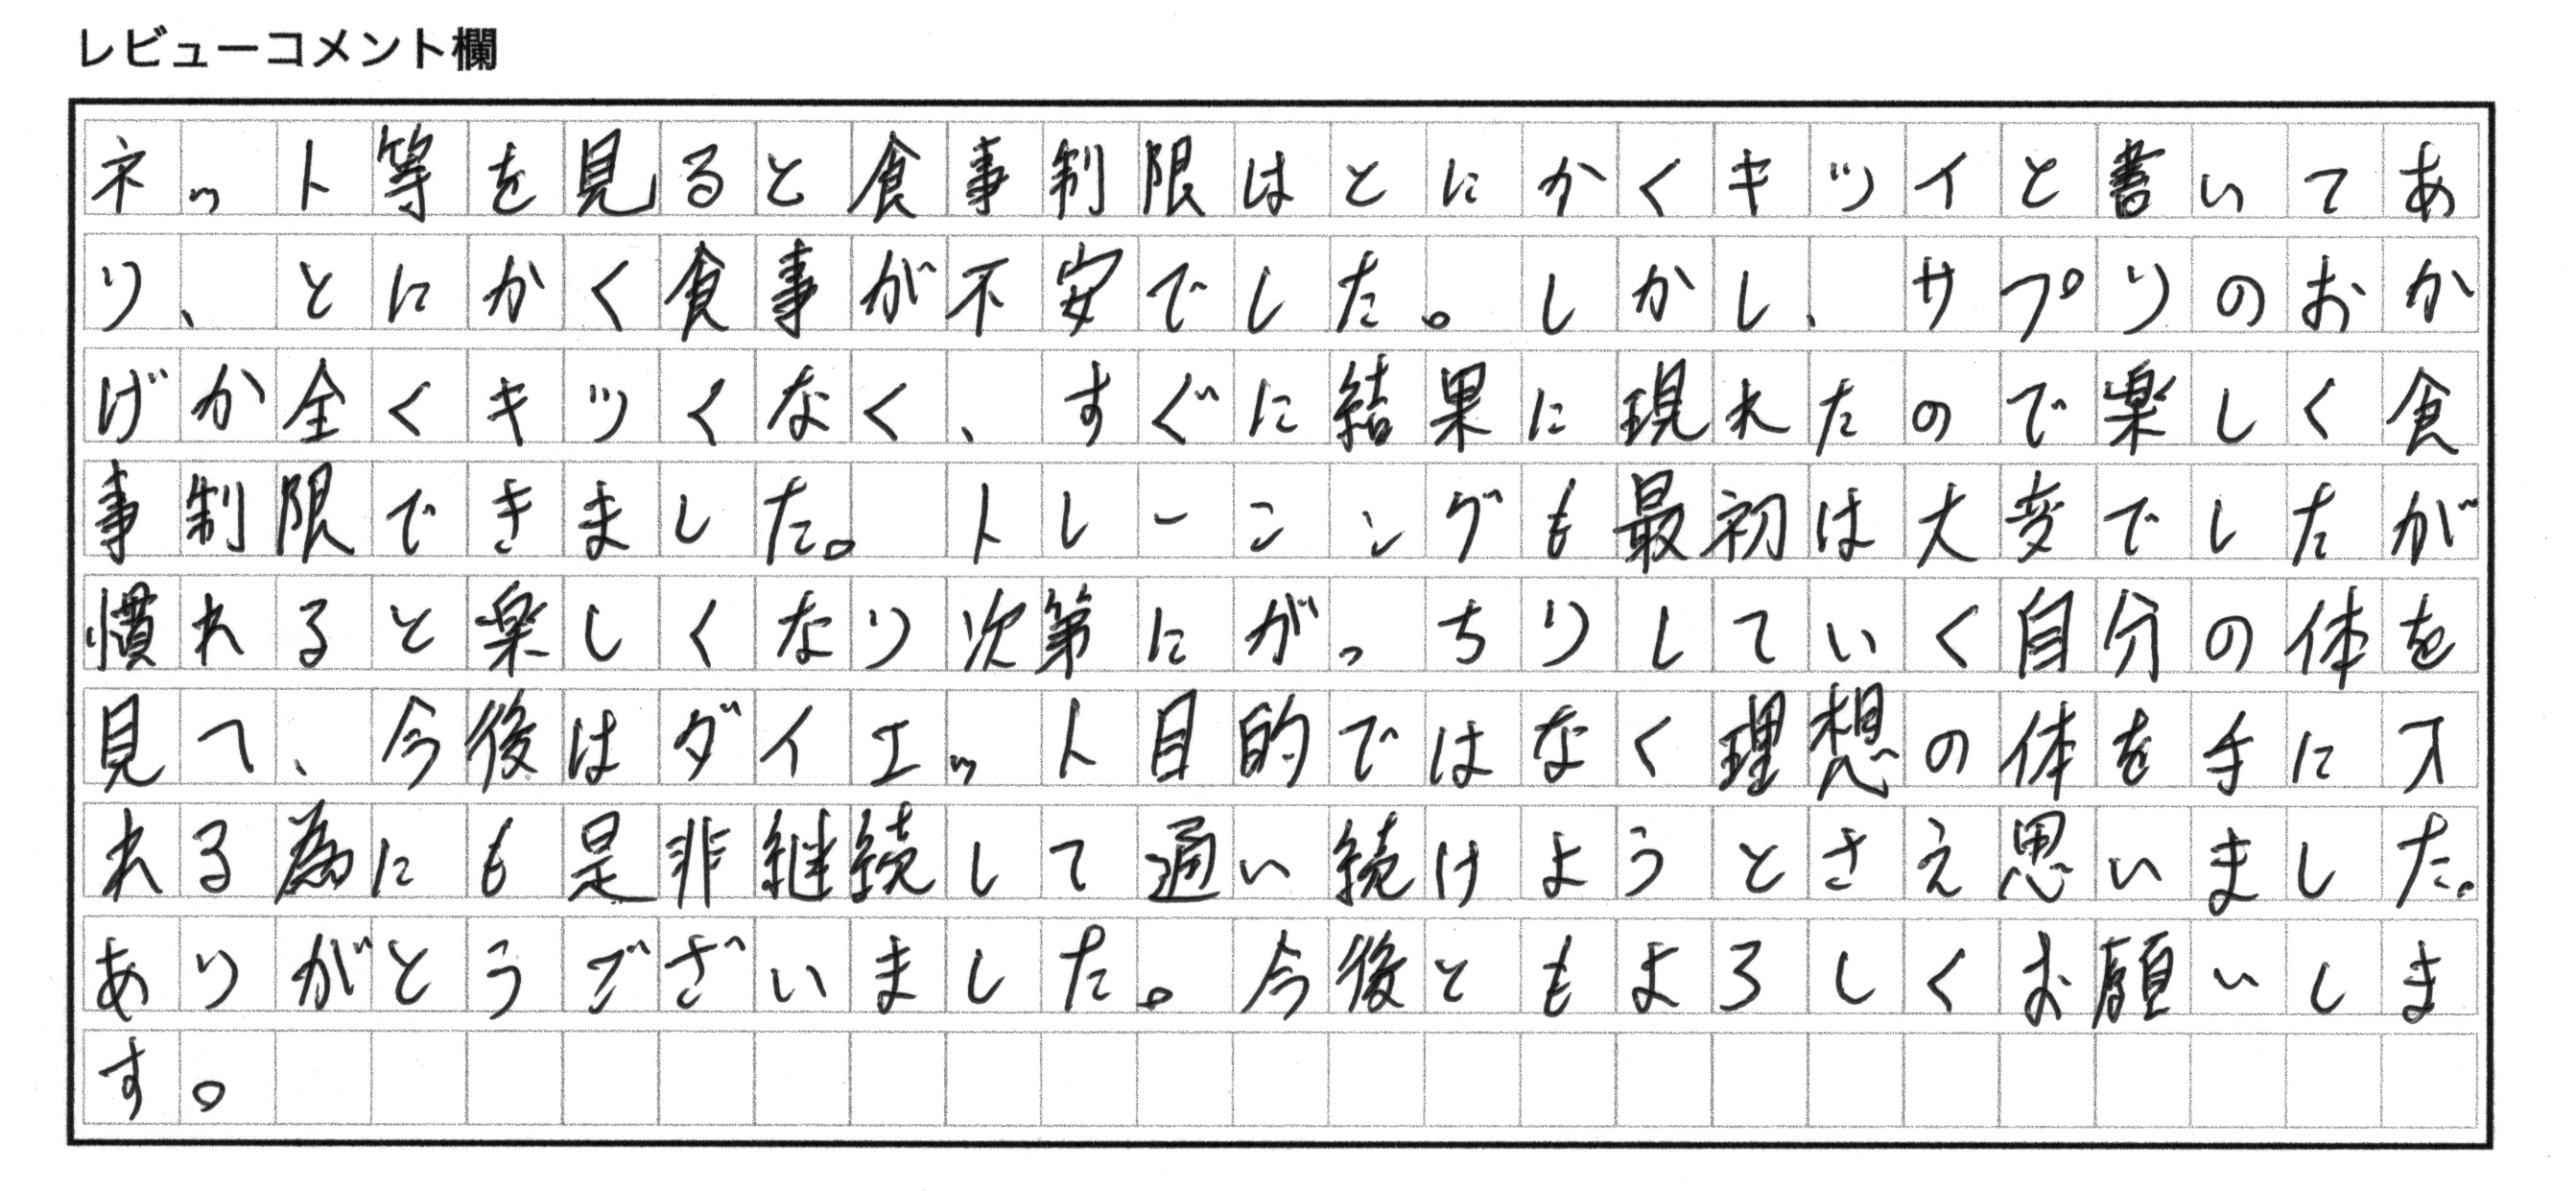 レビューコメント欄
ネット等を見ると食事制限はとにかくキツイと書いてあ
り、とにかく食事が不安でした。しかし、サプリのおか
げか全くキツくなく、すぐに結果に現れたので楽しく食
事制限できました。トレーニングも最初は大変でしたが
慣れると楽しくなり次第にがっちりしていく自分の体を
見て、今後はダイエット目的ではなく理想の体を手に入
れる為にも是非継続して通い続けようとさえ思いました。
ありがとうございました。今後ともよろしくお願いしま
す。